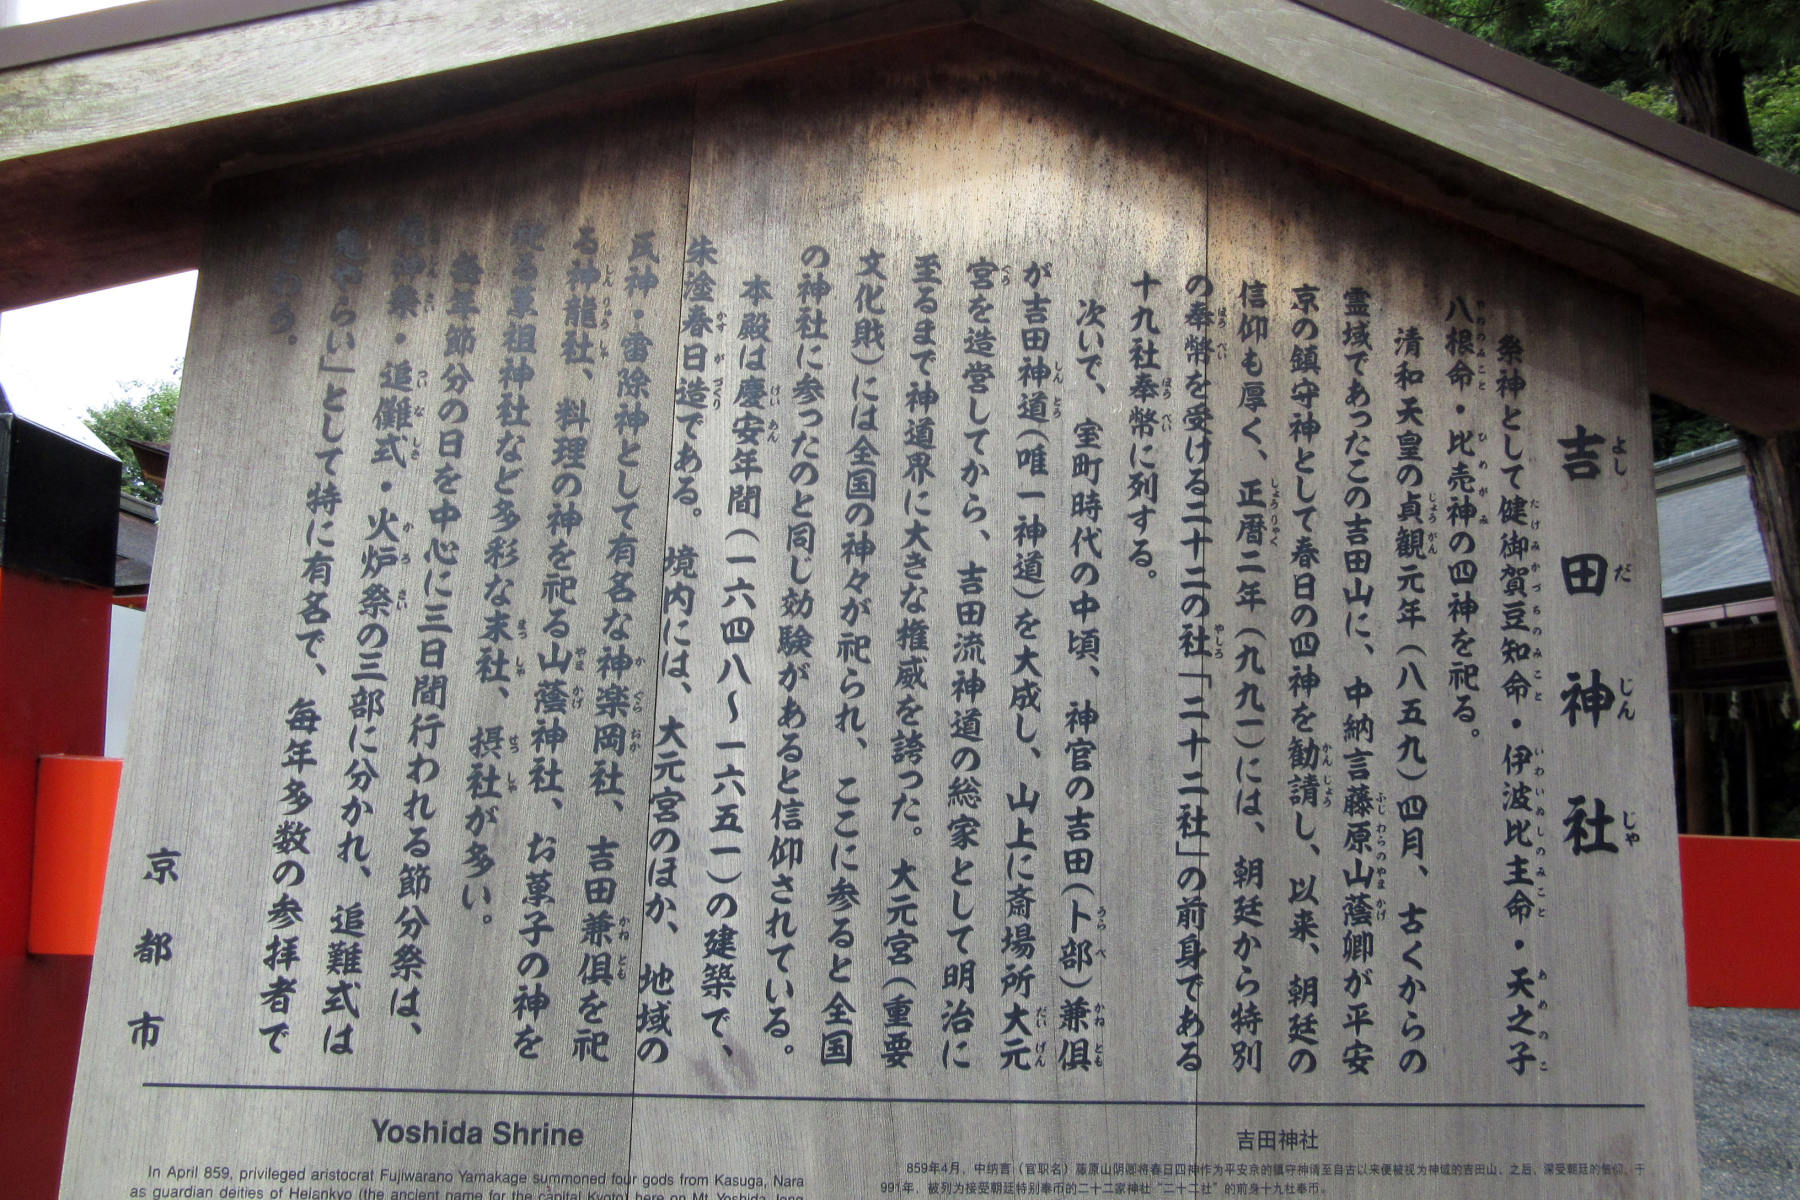 吉田神社
よしだじんじゃ
祭神として健御賀豆知命・伊波比主命・天之子
たけみかづちのみこと いわいぬしのみこと あめのこ
八根命・比売神の四神を祀る。
やねのみこと ひめがみ
清和天皇の貞観元年(八五九)四月、古くからの
じょうがん
霊域であったこの吉田山に、中納言藤原山蔭卿が平安
ふじわらのやまかげ
京の鎮守神として春日の四神を勧請し、以来、朝廷の
かんじょう
信仰も厚く、正暦二年(九九一)には、朝廷から特別
しょうりゃく
の奉幣を受ける二十二の社「二十二社」の前身である
ほうべい やしろ
十九社奉幣に列する。
ほうべい
次いで、室町時代の中頃、神官の吉田(卜部)兼倶
うらべ かねとも
が吉田神道(唯一神道)を大成し、山上に斎場所大元
しんとう だいげん
宮を造営してから、吉田流神道の総家として明治に
ぐう
至るまで神道界に大きな権威を誇った。大元宮(重要
文化財)には全国の神々が祀られ、ここに参ると全国
の神社に参ったのと同じ効験があると信仰されている。
本殿は慶安年間(一六四八〜一六五一)の建築で、
けいあん
朱塗春日造である。境内には、大元宮のほか、地域の
かすがづくり
氏神・雷除神として有名な神楽岡社、吉田兼倶を祀
かぐらおか かねとも
る神龍社、料理の神を祀る山蔭神社、お菓子の神を
しんりゅうしゃ やまかげ
祀る菓祖神社など多彩な末社、摂社が多い。
まっしゃ せっしゃ
毎年節分の日を中心に三日間行われる節分祭は、
神祭・追儺式・火炉祭の三部に分かれ、追難式は
さい ついなしき かろさい
やらい」として特に有名で、毎年多数の参拝者で
わう。
京都市
Yoshida Shrine
In April 859, privileged aristocrat Fujiwarano Yamakage summoned four gods from Kasuga, Nara
as guardian deities of Heiankyo (the ancient name for the capital Kyoto) here on Mt. Yoshida, long
吉田神社
859年4月，中纳言（官职名）藤原山阴卿将春日四神作为平安京的镇守神请至自古以来便被视为神域的吉田山。之后，深受朝廷的信仰，于
991年，被列为接受朝廷特别奉币的二十二家神社“二十二社”的前身十九社奉币。